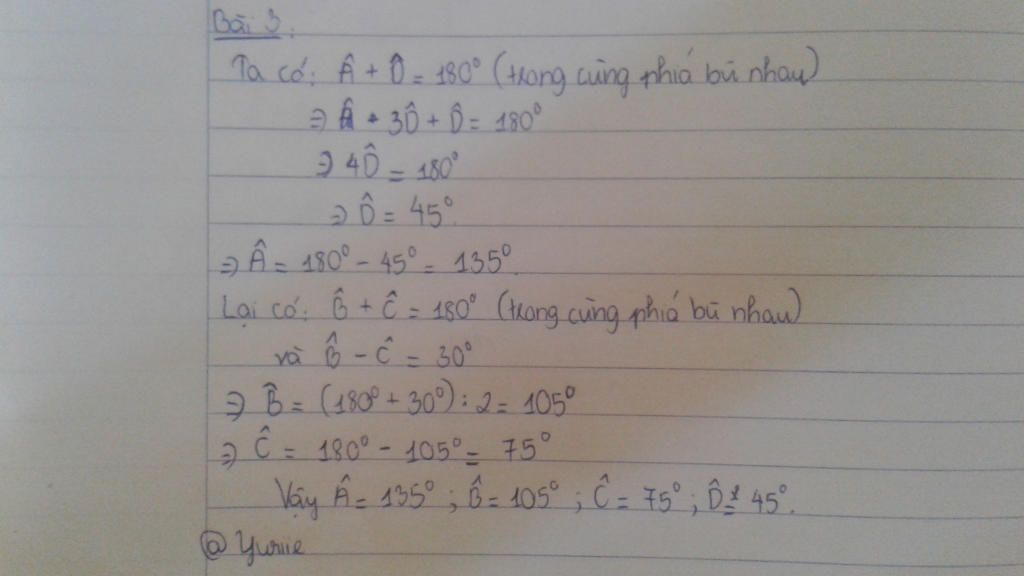 Bài 3:
Ta có: Â + D̂ = 180° (trong cùng phiá bù nhau)
⇒ 3D̂ + D̂ = 180°
⇒ 4D̂ = 180°
⇒ D̂ = 45°.
⇒ Â = 180° - 45° = 135°.
Lại có: B̂ + Ĉ = 180° (trong cùng phiá bù nhau)
và B̂ - Ĉ = 30°
⇒ B̂ = (180° + 30°) : 2 = 105°
⇒ Ĉ = 180° - 105° = 75°
Vậy Â = 135° ; B̂ = 105° ; Ĉ = 75° ; D̂ = 45°.